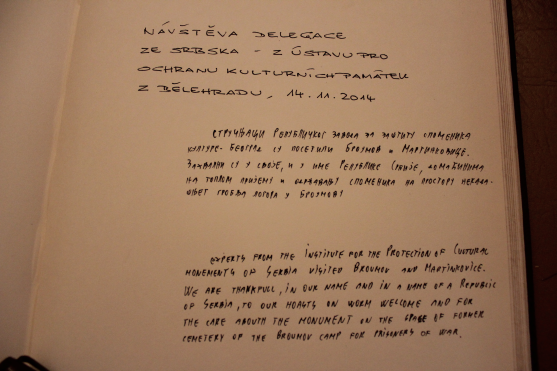 NÁVŠTĚVA DELEGACE
ZE SRBSKA - Z ÚSTAVU PRO
OCHRANU KULTURNÍCH PAMÁTEK
Z BĚLEHRADU, 14.11.2014
СТРУЧЊАЦИ РЕПУБЛИЧКОГ ЗАВОДА ЗА ЗАШТИТУ СПОМЕНИКА
КУЛТУРЕ - БЕОГРАД СУ ПОСЕТИЛИ БРОУМОВ И МАРТИНКОВИЦЕ.
ЗАХВАЛНИ СУ У СВОЈЕ, И У ИМЕ РЕПУБЛИКЕ СРБИЈЕ, ДОМАЋИНИМА
НА ТОПЛОМ ПРИЈЕМУ И ОДРЖАВАЊУ СПОМЕНИКА НА ПРОСТОРУ НЕКАДА-
ШЊЕГ ГРОБЉА ЛОГОРА У БРОУМОВУ
EXPERTS FROM THE INSTITUTE FOR THE PROTECTION OF CULTURAL
MONEMENTS OF SERBIA VISITED BROUMOV AND MARTINKOVICE.
WE ARE THANKFULL, IN OUR NAME AND IN A NAME OF A REPUBLIC
OF SERBIA, TO OUR HOASTS ON WORM WELCOME AND FOR
THE CARE ABOUTH THE MONUMENT ON THE SPACE OF FORMER
CEMETERY OF THE BROUMOV CAMP FOR PRISONERS OF WAR.